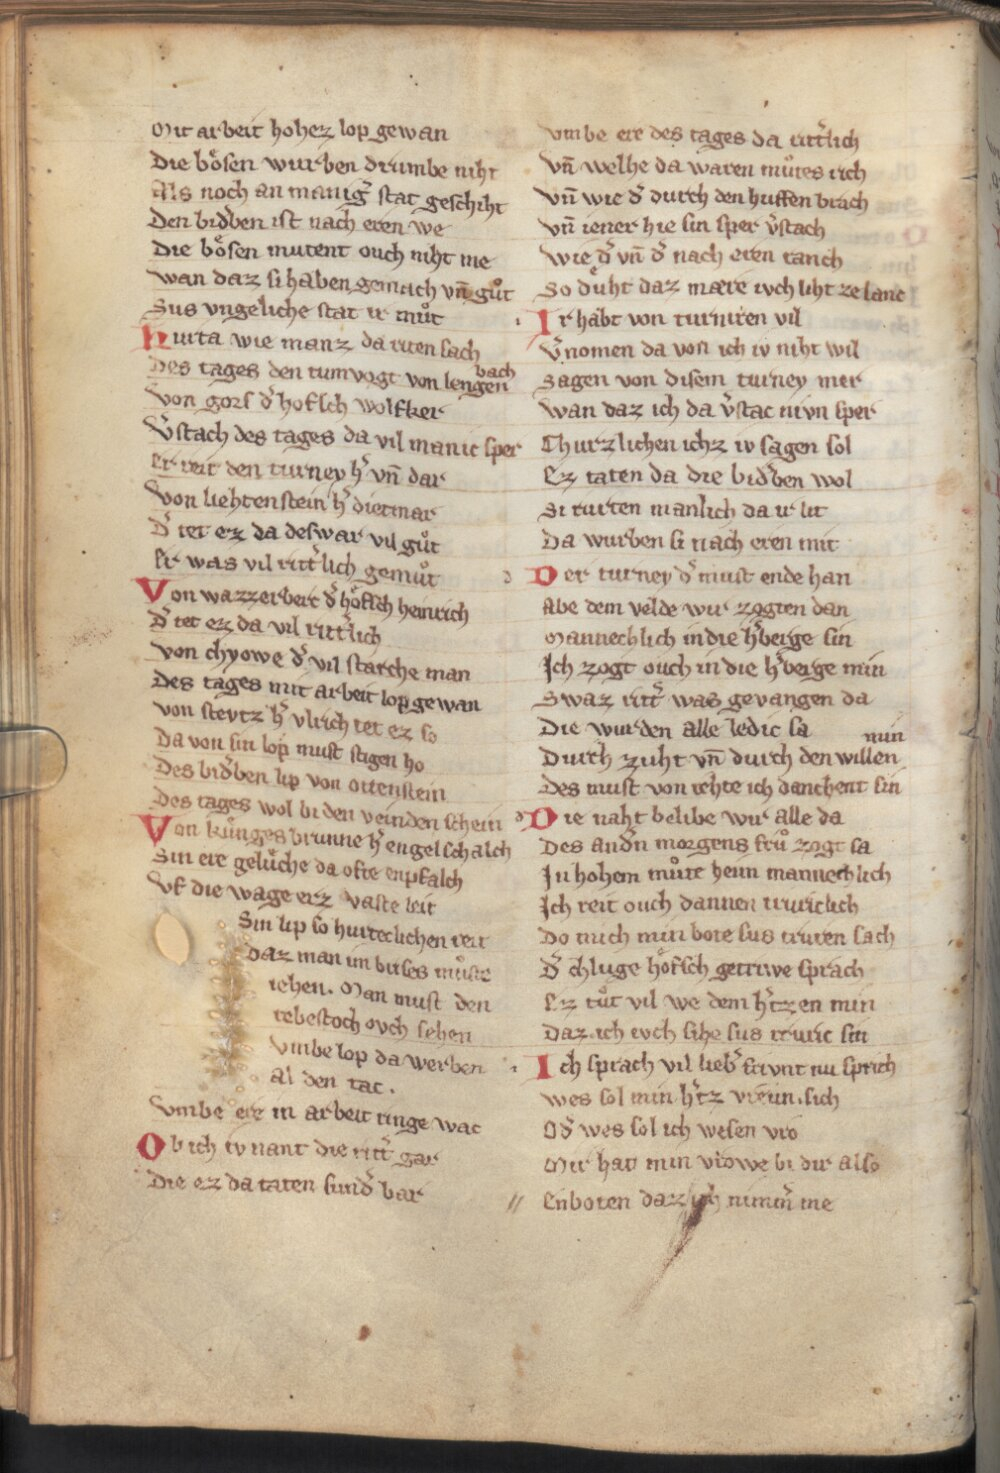 Mit arbeit hohez lop gewan
Die bo̊sen wurben drumbe niht
Als noch an manig̃ stat geschiht
Den bid̃ben ist nach eren we
Die bo̊sen mutent ouch niht me
wan daz si haben gemach vñ gůt
Sus vngeliche stat ir můt
Hurta wie manz da riten sach
Des tages den tumvogt von lengenbach
Von gors d̃ hofsch wolfker
V̾stach des tages da vil manic sper
Er reit den turney h̾ vñ dar
Von liehtenstein h̾ dietmar
D̾ tet ez da deswar vil gůt
Er was vil ritt̾lich gemůt
Von wazzerberc d̾ hőfsch heinrich
D̾ tet ez da vil ritt̾lich
von chyowe d̾ vil starche man
Des tages mit arbeit lop gewan
von steytz h̾ vlrich tet ez so
Da von sin lop must stigen ho
Des bid̾ben lip von ottenstein
Des tages wol bi den veinden schein
Von kůnges brunne h̾ engelschalch
Sin ere gelůche da ofte enpfalch
Vf die wage erz vaste leit
Sin lip so hurteclichen reit
daz man im bitses můste
iehen. Man must den
rebestoch ovch sehen
Vmbe lop da werben
al den tac.
Vmbe ere in arbeit ringe wac
Ob ich iv nant die ritt̾ gar
Die ez da taten sund̾bar
Vmbe ere des tages da ritt̾lich
Vñ welhe da waren můtes rich
Vñ wie d̾ durch den huffen brach
Vñ iener hie sin sper v̾stach
Wie d̾ vñ d̾ nach eren ranch
So duht daz mære ivch liht ze lanc
Ir habt von turniren vil
V̾nomen da von ich iv niht wil
Sagen von disem turney mer
Wan daz ich da v̾stac nivn sper
Churzlichen ichz iv sagen sol
Ez taten da die bid̾ben wol
Si rurten manlich da ir lit
Da wurben si nach eren mit
Der turney d̾ must ende han
Abe dem velde wir zogten dan
Mannechlich in die h̾berge sin
Ich zogt ouch in die h̾berge min
Swaz ritt̾ was gevangen da
Die wurden alle ledic sa
Durch zuht vñ durch den willen min
Des must von rehte ich danchent sin
Die naht belibe wir alle da
Des and̾n morgens frů zogt sa
In hohem můte heim mannechlich
Ich reit ouch dannen trurichlich
Do mich min bote sus truren sach
D̾ chluge hőfsch getriwe sprach
Ez tůt vil we dem h̾tzen min
Daz ich ivch sihe sus truric sin
Ich sprach vil lieb̾ frivnt nu sprich
Wes sol min h̾tz vreun sich
Od̾ wes sol ich wesen vro
Mir hat min vrowe bi dir also
Enboten daz ich nimm̾ me